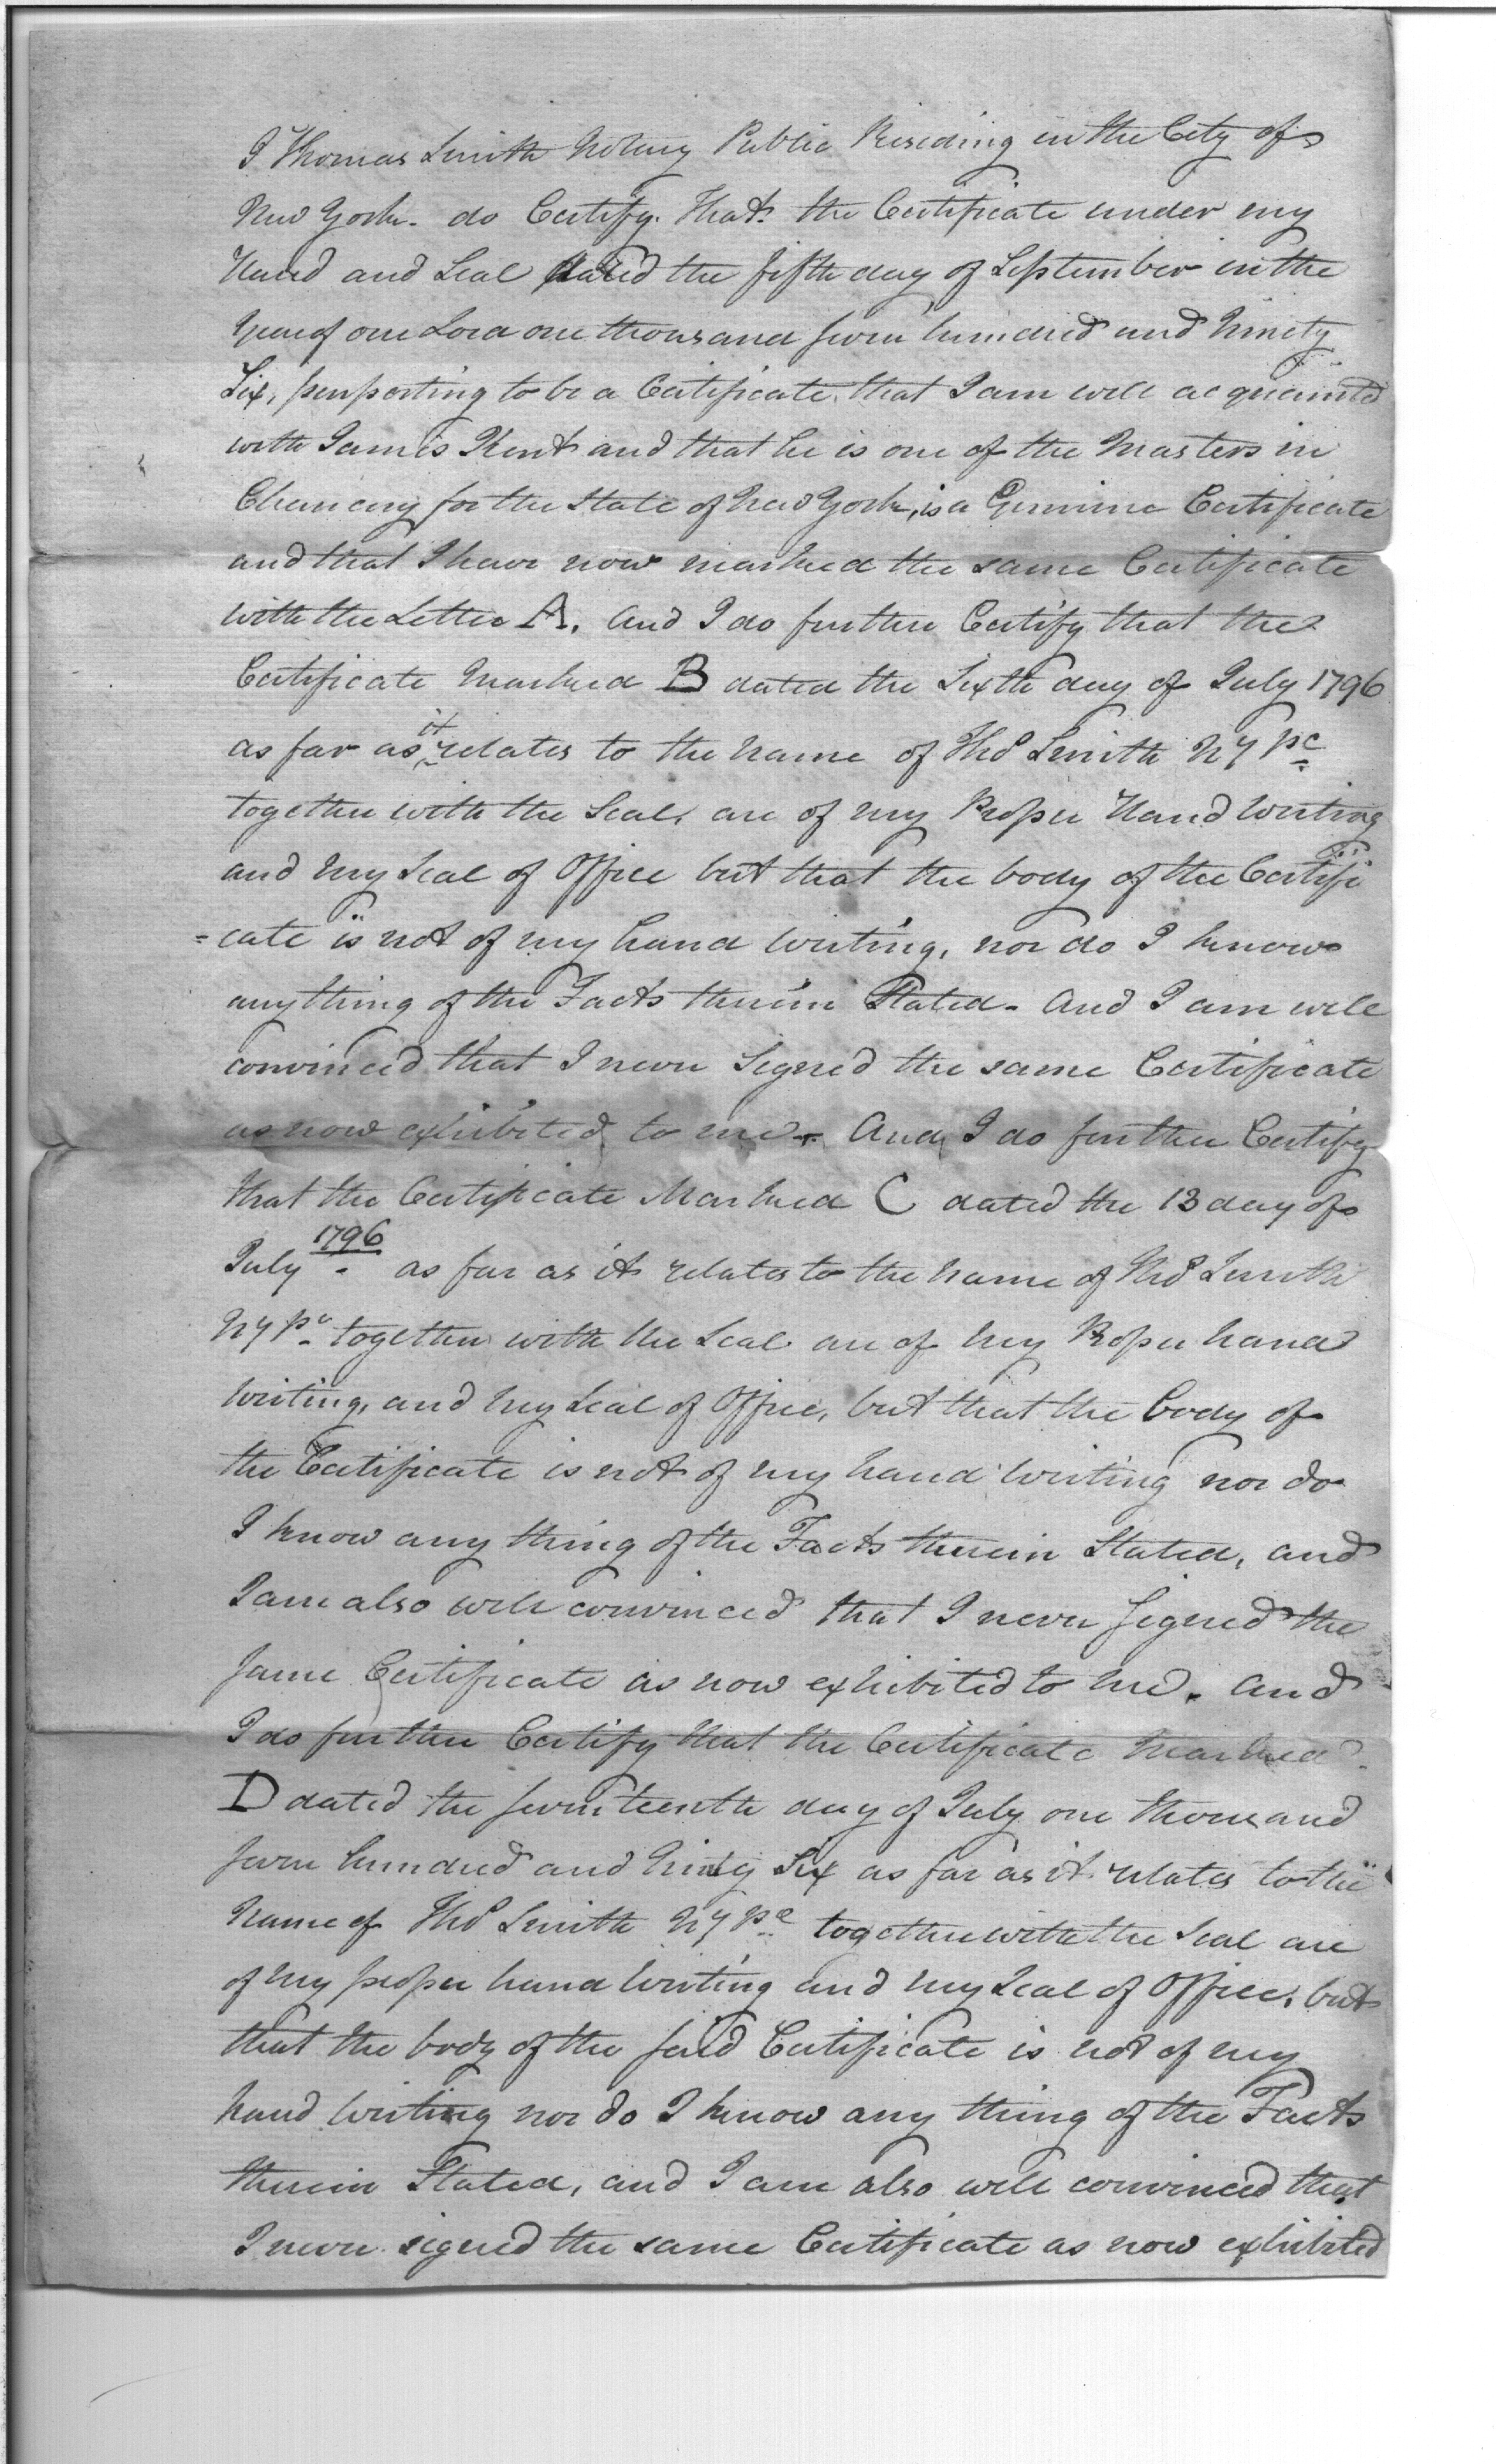 I Thomas Smith Notary Public Residing in the City of
New York. do Certify. That the Certificate under my
Hand and Seal dated the fifth day of September in the
Year of our Lord one thousand seven hundred and Ninety
Six, purporting to be a Certificate that I am well acquainted
with James Kent and that he is one of the Masters in
Chancery for the State of New York, is a Genuine Certificate
and that I have now marked the same Certificate
with the Letter A. And I do further Certify that the
Certificate Marked B dated the Sixth day of July 1796
as far as it relates to the name of Tho.s Smith N Y Pc
together with the Seal, are of my Proper Hand Writing
and my Seal of Office but that the body of the Certifi
=cate is not of my hand Writing, nor do I know
any thing of the Facts therein Stated - And I am well
convinced that I never Signed the same Certificate
as now exhibited to me - And I do further Certify
that the Certificate Marked C dated the 13 day of
July 1796 - as far as it relates to the name of Tho.s Smith
N Y Pc together with the Seal are of my Proper hand
Writing, and my Seal of Office, but that the body of
the Certificate is not of my hand Writing nor do
I know any thing of the Facts therein Stated, and
I am also well convinced that I never signed the
same Certificate as now exhibited to me. And
I do further Certify that the Certificate Marked
D dated the seventeenth day of July one thousand
seven hundred and Ninty Six as far as it relates to the
Name of Tho.s Smith N Y Pc together with the Seal are
of my proper hand Writing and my Seal of Office, but
that the body of the said Certificate is not of my
hand Writing nor do I know any thing of the Facts
therein Stated, and I am also well convinced that
I never signed the same Certificate as now exhibited